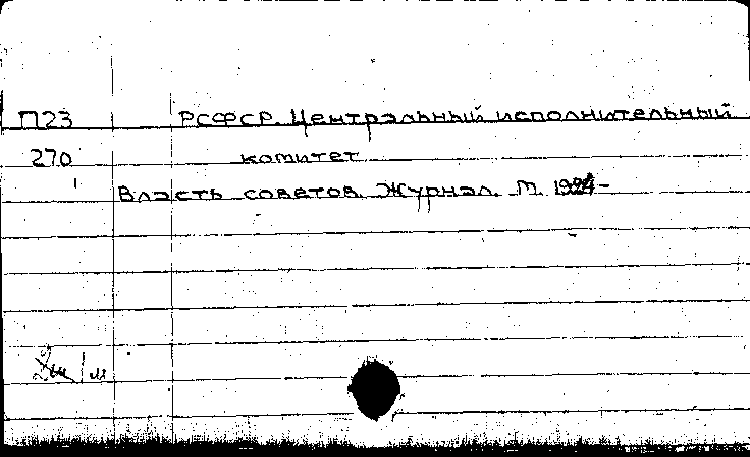 П23 РСФСР. Центральный исполнительный
270 комитет
Власть советов. Журнал. М.